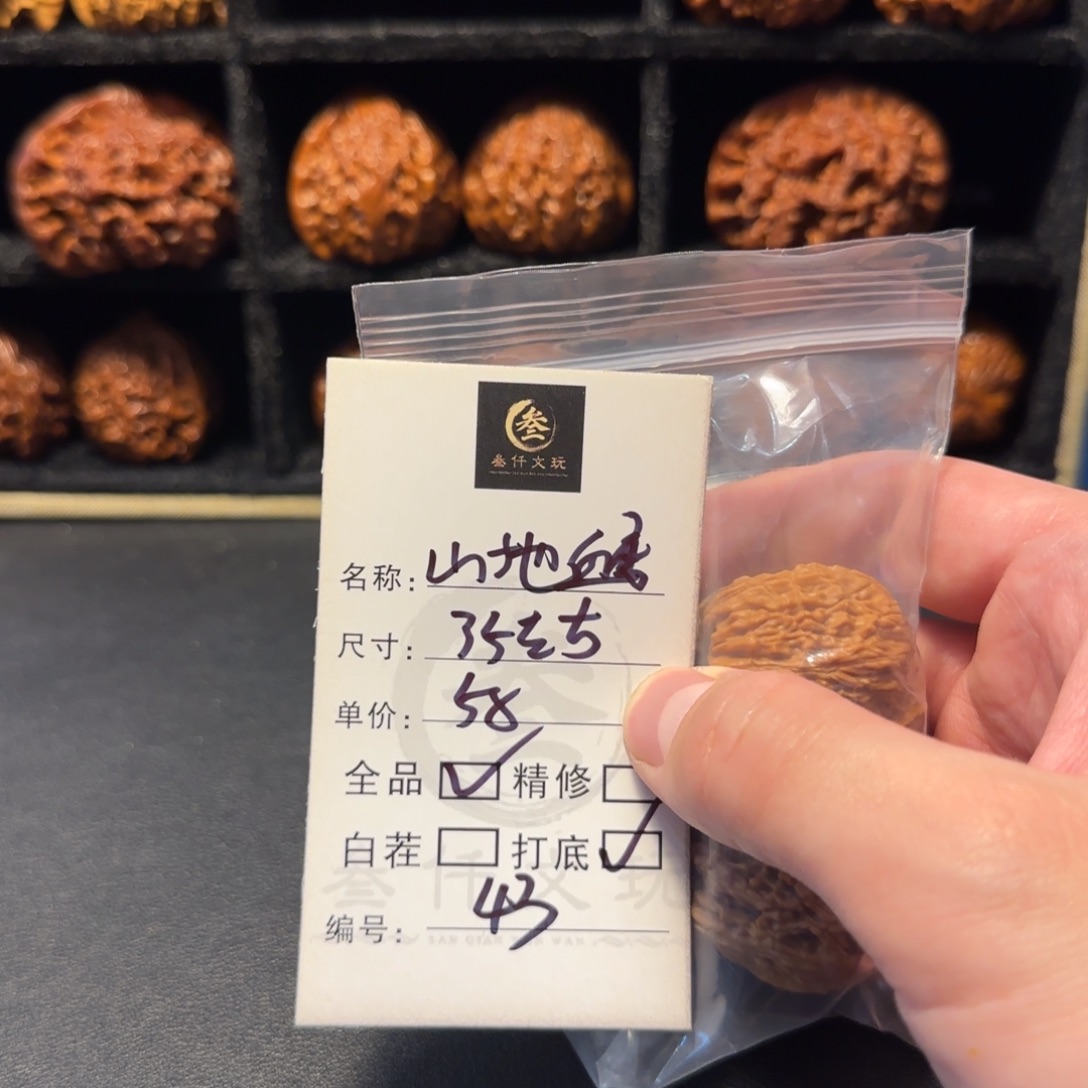 叁
叁仟文玩
名称: 山地
尺寸: 35左右
单价: 58
全品 ✓ 精修
白茬 打底 ✓
编号: 43
叁仟文玩
SAN QIAN WEN WAN